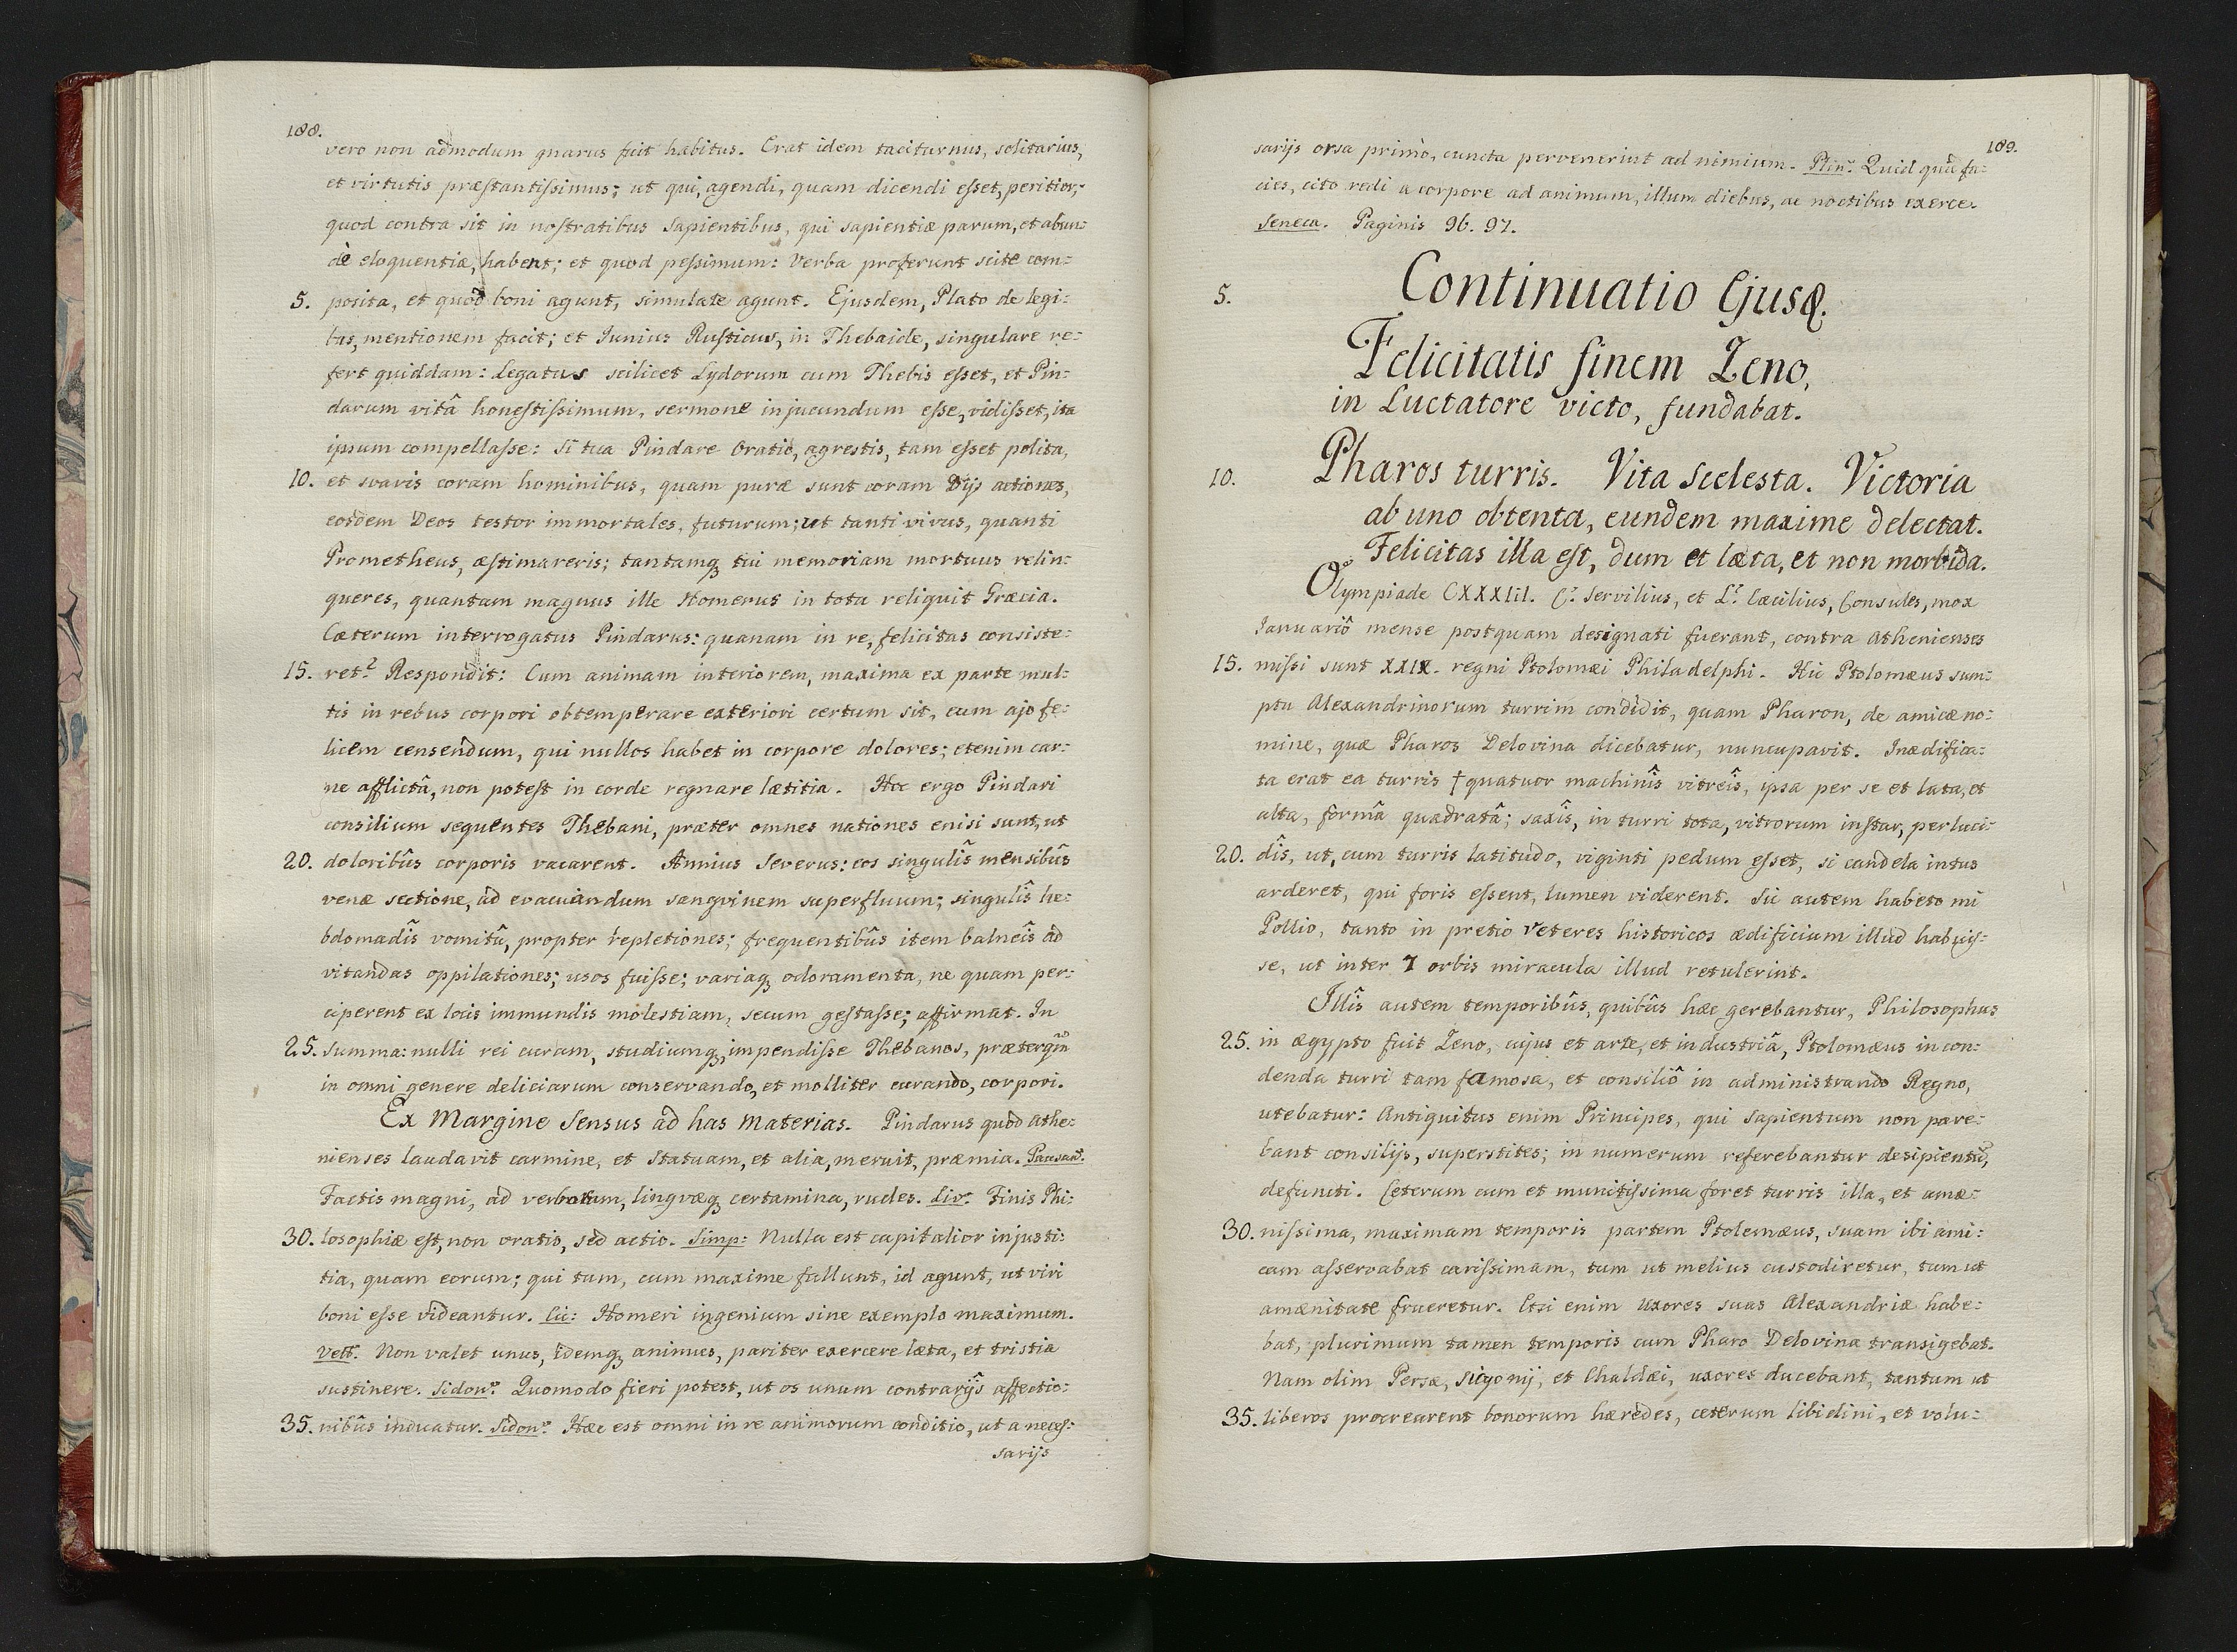 188.
vero non admodum gnarus fuit habitus. Erat idem taciturnus, solitarius,
et virtutis præstantissimus; ut qui, agendi, quam dicendi esset, peritior;
quod contra sit in nostratibus Sapientibus, qui sapientiæ parum, et abun=
dè eloquentiæ, habent; et quod pessimum: Verba proferunt scite com=
5. posita, et quod boni agunt, simulate agunt. Ejusdem, Plato de legi=
bus, mentionem facit; et Junius Rusticus, in Thebaide, singulare re=
fert quiddam: Legatus scilicet Lydorum cum Thebis esset, et Pin=
darum vitâ honestissimum, sermone injucundum esse, vidisset, ita
ipsum compellasse: Si tua Pindare Oratio, agrestis, tam esset polita,
10. et svavis coram hominibus, quam puræ sunt coram Dijs actiones,
eosdem Deos testor immortales, futurum; ut tanti vivus, quanti
Prometheus, æstimareris; tantamq; tui memoriam mortuus relin=
queres, quantam magnus ille Homerus in tota reliquit Græcia.
Cæterum interrogatus Pindarus: quanam in re, felicitas consiste=
15. ret? Respondit: Cum animam interiorem, maxima ex parte mul=
tis in rebus corpori obtemperare exteriori certum sit, eum ajo fe=
licem censendum, qui nullos habet in corpore dolores; etenim car=
ne afflictâ, non potest in corde regnare lætitia. Hoc ergo Pindari
consilium sequentes Thebani, præter omnes nationes enisi sunt, ut
20. doloribûs corporis vacarent. Annius Severus: eos singulîs mensibûs
venæ sectione, ad evacuandum sangvinem superfluum; singulîs he=
bdomadîs vomitû, propter repletiones; frequentibûs item balneîs ad
vitandas oppilationes; usos fuisse; variaq; odoramenta, ne quam per=
ciperent ex locis immundis molestiam, secum gestasse; affirmat. In
25. summa: nulli rei curam, studiumq; impendisse Thebanos, præterqm̃
in omni genere deliciarum conservando, et molliter curando, corpori.
Ex Margine Sensus ad has Materias. Pindarus quod Athe=
nienses laudavit carmine, et Statuam, et alia, meruit, præmia. Pausan:
Factis magni, ad verborum, lingvæq; certamina, rudes. Liv: Finis Phi=
30. losophiæ est, non oratio, sed actio. Simp: Nulla est capitalior injusti=
tia, quam eorum; qui tum, cum maxime fallunt, id agunt, ut viri
boni esse videantur. Cic: Homeri ingenium sine exemplo maximum.
Vell: Non valet unus, idemq; animus, pariter exercere læta, et tristia
sustinere. Sidon: Quomodo fieri potest, ut os unum contrarijs affectio=
35. nibûs induatur. Sidon: Hæc est omni in re animorum conditio, ut a neces=
sarijs
189.
sarijs orsa primò, cuncta pervenerint ad nimium. Plin: Quid quid fa=
cies, cito redi a corpore ad animum, illum diebus, ac noctibus exerce.
Seneca. Paginis 96. 97.
5. Continuatio Ejusd.
Felicitatis finem Zeno,
in Luctatore victo, fundabat.
10. Pharos turris. Vita Scelesta. Victoria
ab uno obtenta, eundem maxime delectat.
Felicitas illa est, dum et læta, et non morbida.
Olympiade CXXXIII. C: Servilius, et L: Cæcilius, Consules, mox
Januariô mense postquam designati fuerant, contra Athenienses
15. missi sunt XXIX. regni Ptolomæi Philadelphi. Hic Ptolomæus sum=
ptu Alexandrinorum turrim condidit, quam Pharon, de amicæ no=
mine, quæ Pharos Delovina dicebatur, nuncupavit. Inædifica=
ta erat ea turris † quatuor machinîs vitreîs, ipsa per se et lata, et
alta, formâ quadratâ; saxîs, in turri tota, vitrorum instar, perluci=
20. dîs, ut, cum turris latitudo, viginti pedum esset, si candela intus
arderet, qui foris essent, lumen viderent. Sic autem habeto mi
Pollio, tanto in pretio veteres historicos ædificium illud habuis=
se, ut inter 7 orbis miracula illud retulerint.
Illîs autem temporibûs, quibûs hæc gerebantur, Philosophus
25. in Ægypto fuit Zeno, cujus et arte, et industriâ, Ptolomæus in con=
denda turri tam famosa, et consiliô in administrando Regno,
utebatur: Antiquitus enim Principes, qui Sapientum non pare=
bant consilijs, superstites; in numerum referebantur desipientũ,
defuncti. Ceterum cum et munitissima foret turris illa, et amæ=
30. nissima, maximam temporis partem Ptolemæus, suam ibi ami=
cam asservabat carissimam, tum ut melius custodiretur, tum ut
amænitate frueretur. Etsi enim Uxores suas Alexandriæ habe=
bat, plurimum tamen temporis cum Pharo Delovina transigebat.
Nam olim Persæ, Sicyonij, et Chaldæi, uxores ducebant, tantum ut
35. liberos procrearent bonorum hæredes, ceterum libidini, et volu=